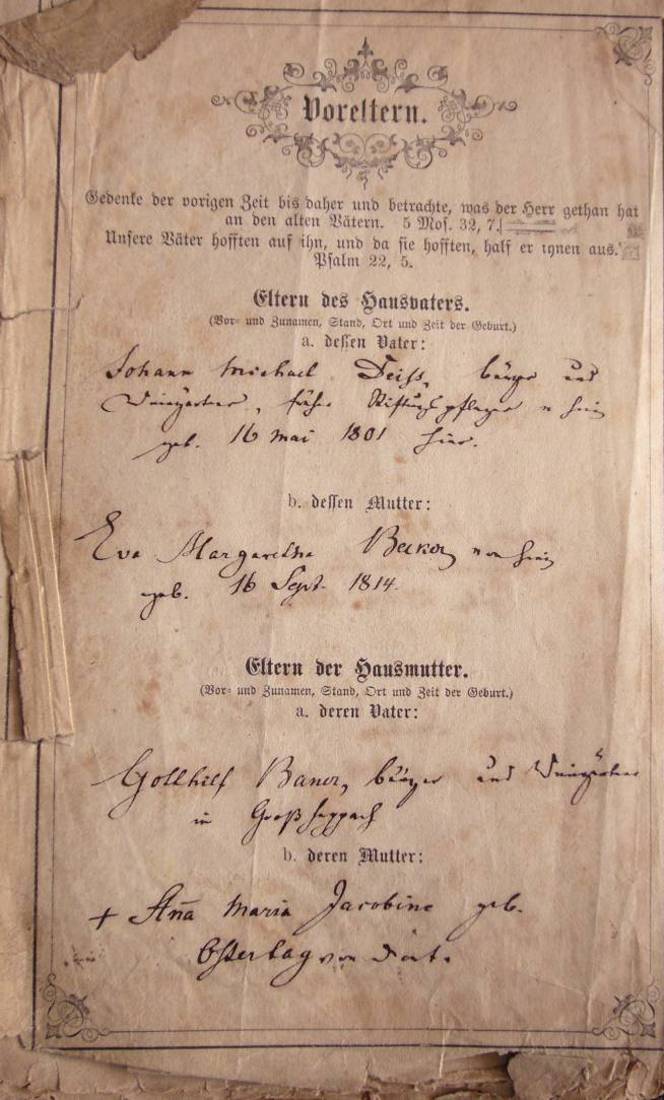 Voreltern.
Gedenke der vorigen Zeit bis daher und betrachte, was der Herr gethan hat
an den alten Vätern. 5 Mos. 32, 7.
Unsere Väter hofften auf ihn, und da sie hofften, half er ihnen aus.
Psalm 22, 5.
Eltern des Hausvaters.
(Vor- und Zunamen, Stand, Ort und Zeit der Geburt.)
a. dessen Vater:
Johann Michael Deiß, bürger und
Weingärtner, früher Stiftungspfleger v hier
geb. 16 Mai 1801 hier.
b. dessen Mutter:
Eva Margaretha von hier
geb. 16 Sept. 1814.
Eltern der Hausmutter.
(Vor- und Zunamen, Stand, Ort und Zeit der Geburt.)
a. deren Vater:
Gotthilf Bauer, bürger und Weingärtner
in Großheppach
b. deren Mutter:
+ Aña Maria Jacobine geb.
Ostertag von dort.